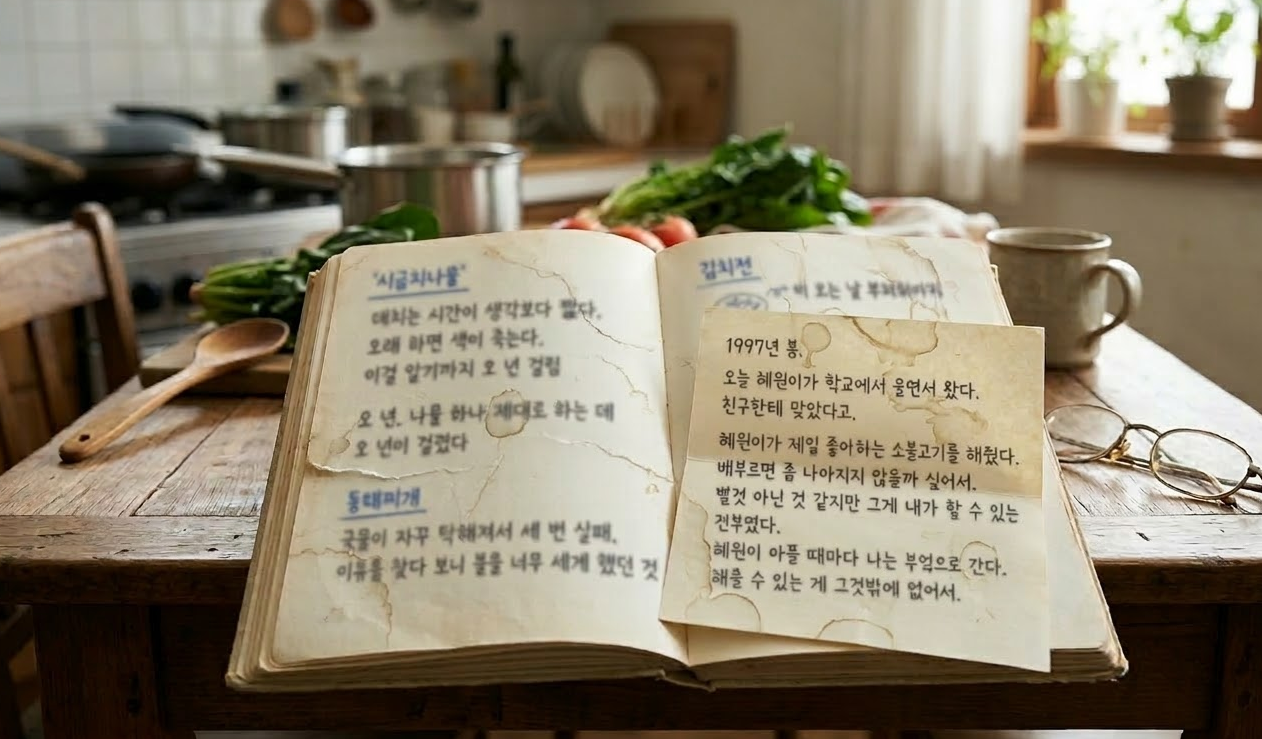 '시금치나물'
데치는 시간이 생각보다 짧다,
오래 하면 색이 죽는다.
이걸 알기까지 오 년 걸림
오 년. 나물 하나 제대로 하는 데
오 년이 걸렸다
동태찌개
국물이 자꾸 탁해져서 세 번 실패.
이유를 찾다 보니 불을 너무 세게 했던 것
김치전
비 오는 날
1997년 봄.
오늘 혜원이가 학교에서 울면서 왔다.
친구한테 맞았다고.
혜원이가 제일 좋아하는 소불고기를 해줬다.
배부르면 좀 나아지지 않을까 싶어서.
별것 아닌 것 같지만 그게 내가 할 수 있는
전부였다.
혜원이 아플 때마다 나는 부엌으로 간다.
해줄 수 있는 게 그것밖에 없어서.